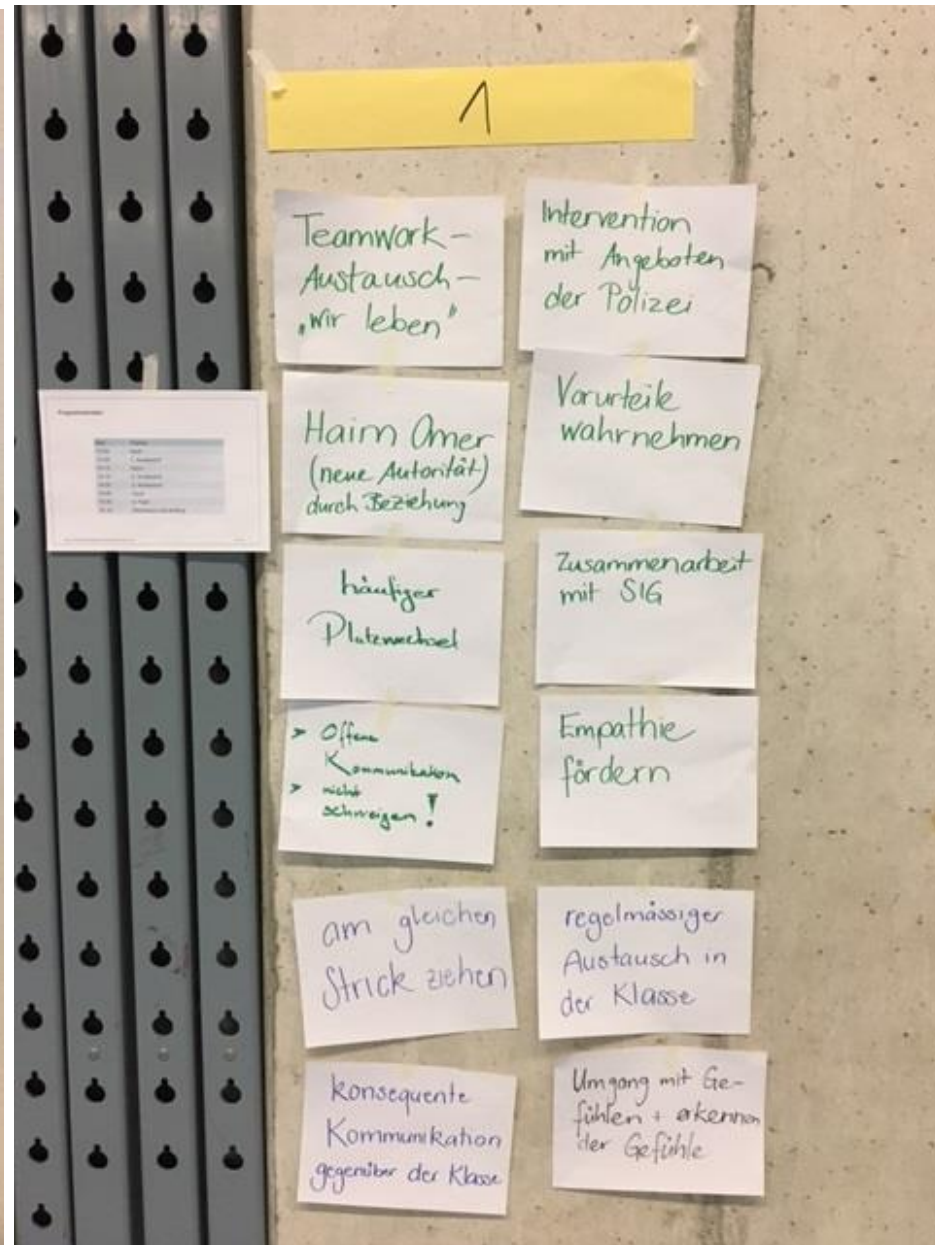 1
Teamwork –
Austausch –
„wir leben"
Haim Omer
(neue Autorität)
durch Beziehung
häufiger
Platzwechsel
> Offene
Kommunikation
> nicht
schweigen!
am gleichen
Strick ziehen
konsequente
Kommunikation
gegenüber der Klasse
Intervention
mit Angeboten
der Polizei
Vorurteile
wahrnehmen
Zusammenarbeit
mit SIG
Empathie
fördern
regelmässiger
Austausch in
der Klasse
Umgang mit Ge-
fühlen + erkennen
der Gefühle